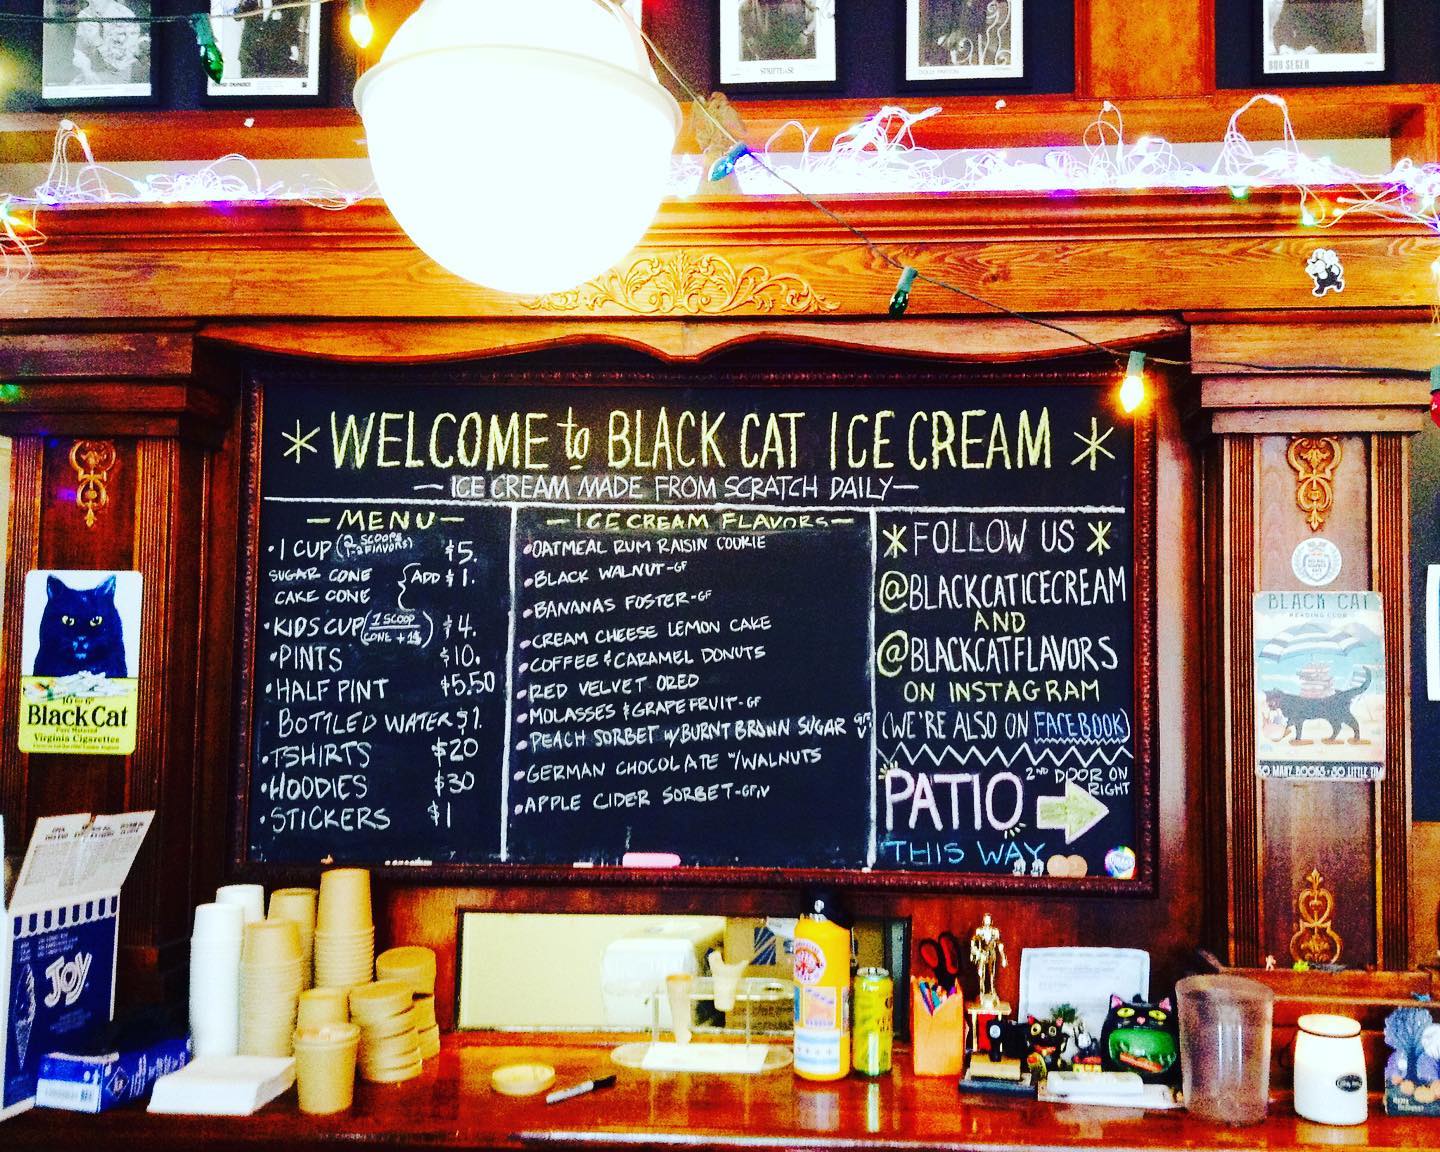 STRIPTEASE
BOB SEGER
* WELCOME to BLACK CAT ICE CREAM *
— ICE CREAM MADE FROM SCRATCH DAILY —
— MENU —
• 1 CUP (2 SCOOPS 1-2 FLAVORS) $5.
SUGAR CONE
CAKE CONE { ADD $1.
• KIDS CUP (1 SCOOP CONE + 1$) $4.
• PINTS $10.
• HALF PINT $5.50
BOTTLED WATER $1.
• TSHIRTS $20
• HOODIES $30
• STICKERS $1
— ICE CREAM FLAVORS —
• OATMEAL RUM RAISIN COOKIE
• BLACK WALNUT-GF
• BANANAS FOSTER-GF
• CREAM CHEESE LEMON CAKE
• COFFEE & CARAMEL DONUTS
• RED VELVET OREO
• MOLASSES & GRAPEFRUIT-GF
• PEACH SORBET W/BURNT BROWN SUGAR GF, V
• GERMAN CHOCOLATE W/WALNUTS
• APPLE CIDER SORBET-GF,V
* FOLLOW US *
@BLACKCATICECREAM
AND
@BLACKCATFLAVORS
ON INSTAGRAM
(WE'RE ALSO ON FACEBOOK)
PATIO
2ND DOOR ON RIGHT
THIS WAY
10 for 6d
Black Cat
Pure Matured
Virginia Cigarettes
BLACK CAT
READING CLUB
SO MANY BOOKS • SO LITTLE TIME
JOY